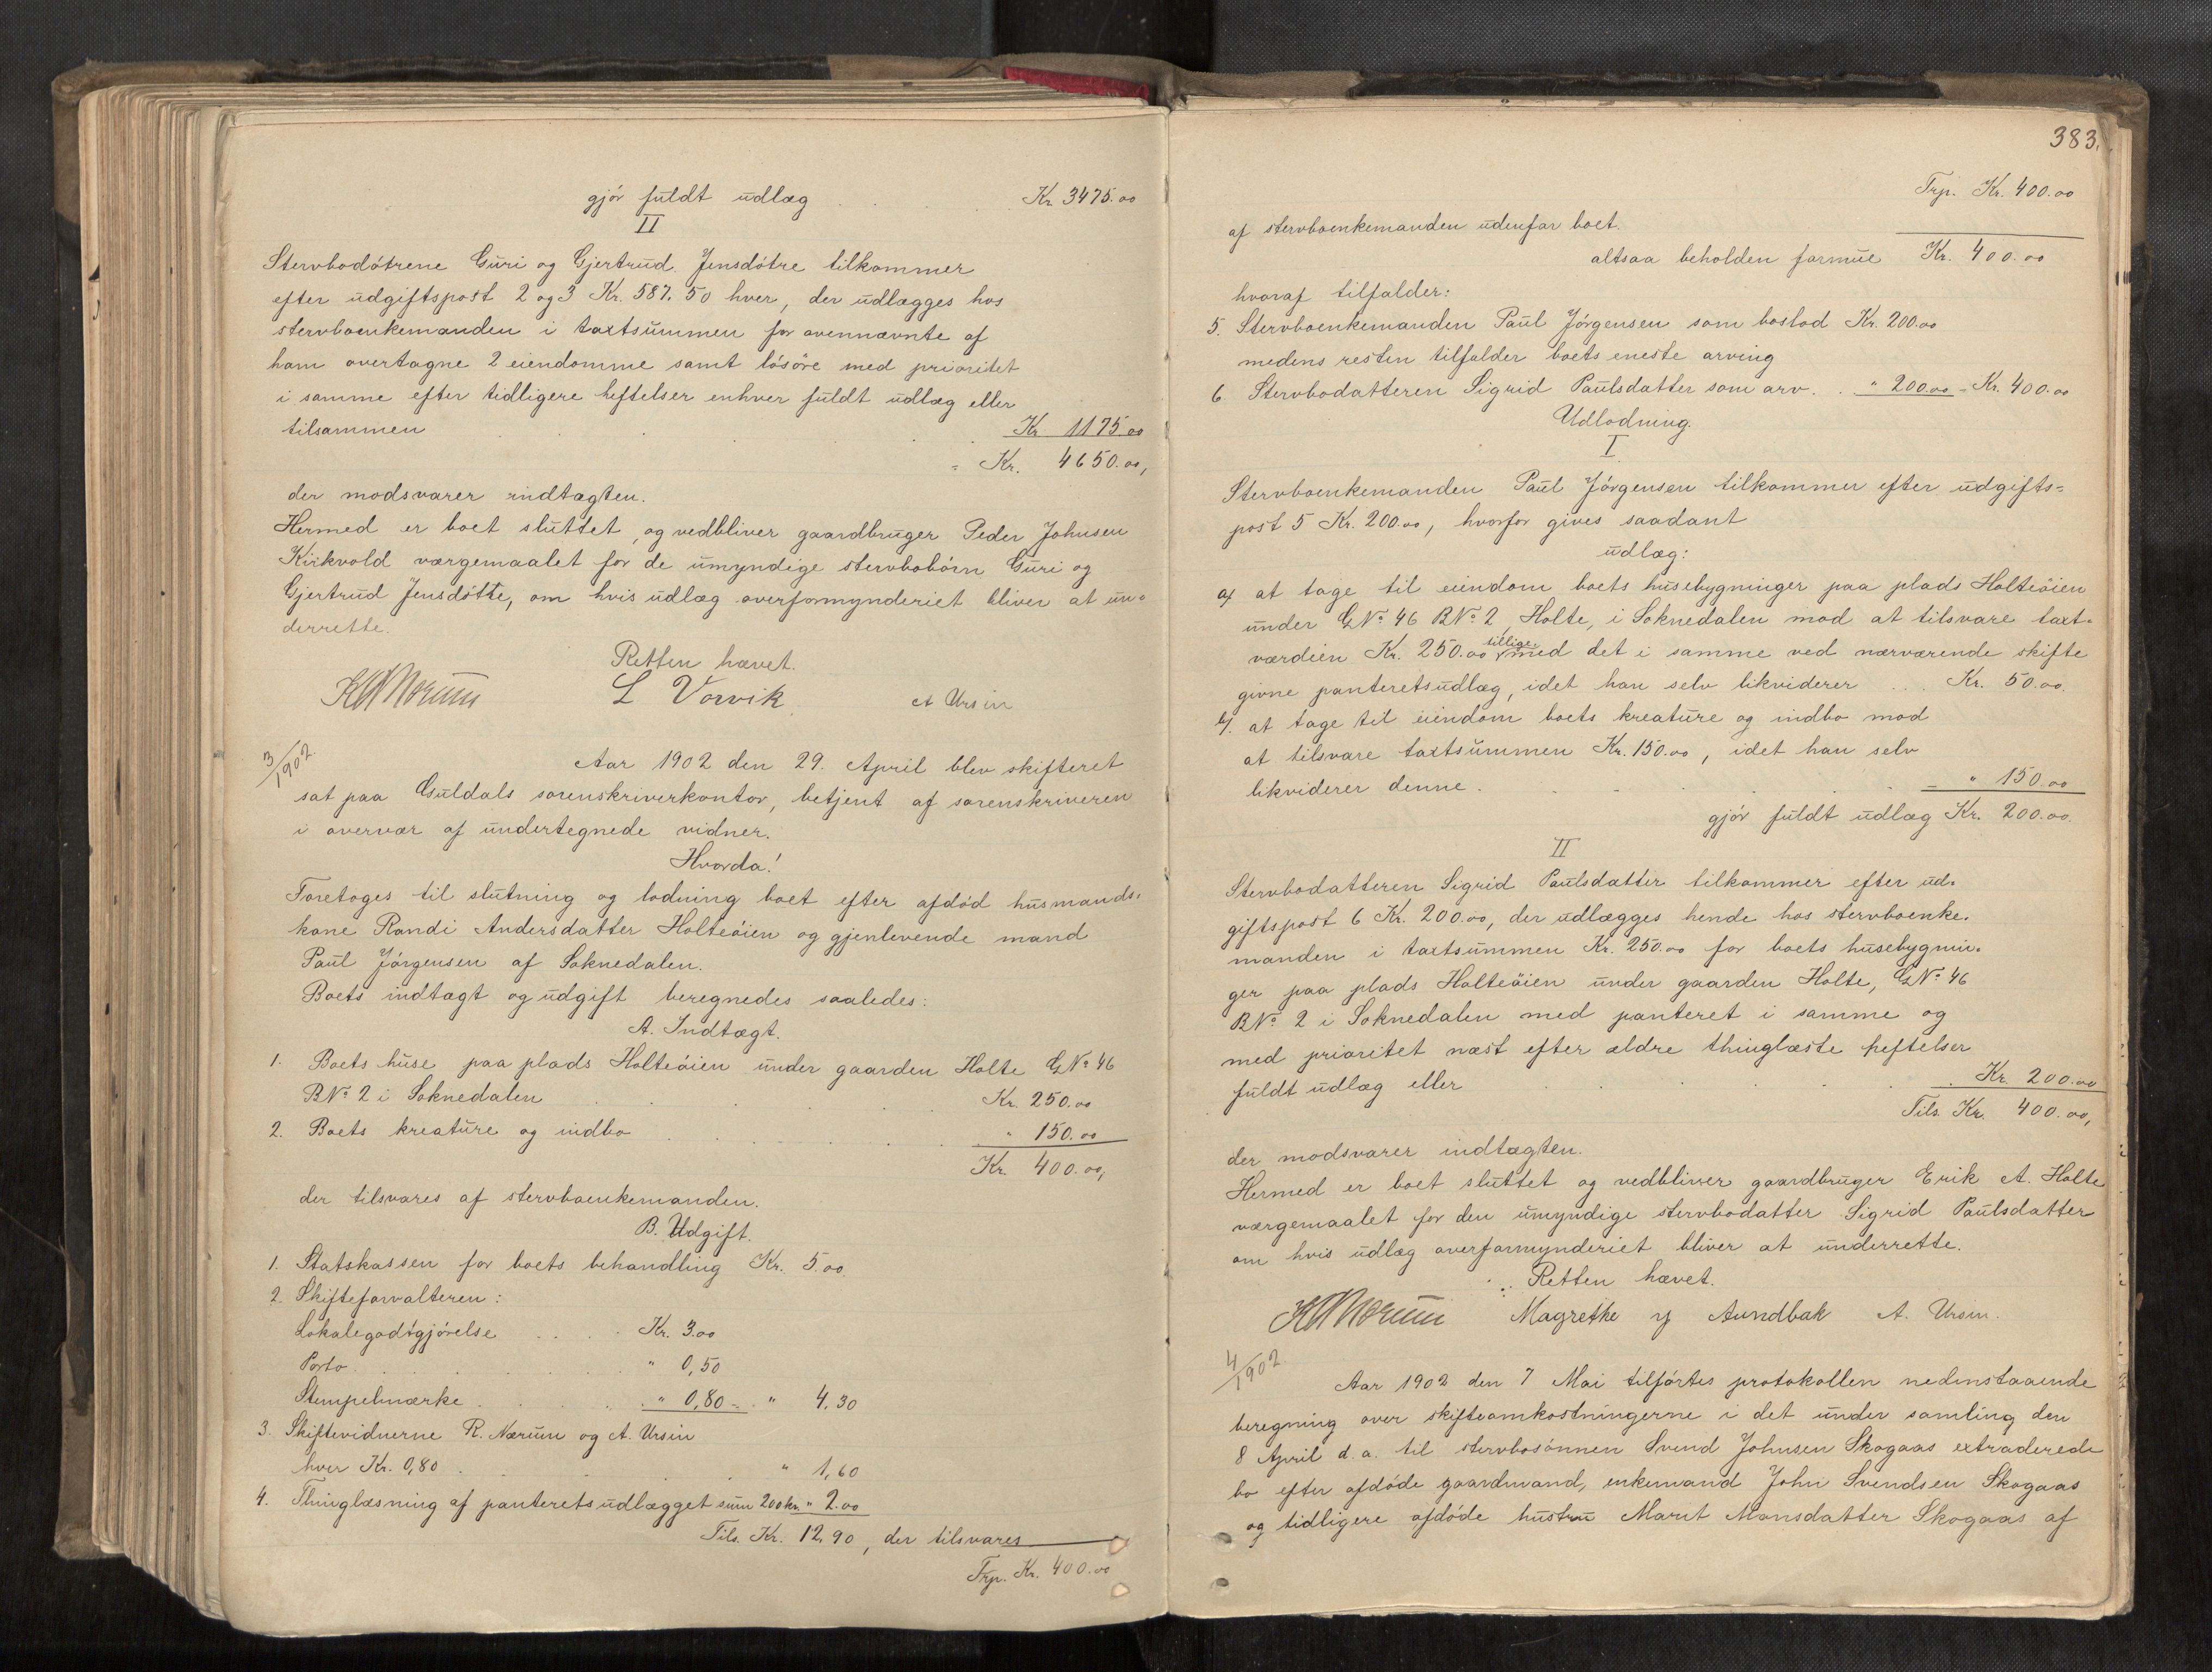 gjór fuldt udlæg . . . Kr. 3475.00
II
Stervbodótrene Guri og Gjertrud Jensdótre tilkommer
efter udgiftspost 2 og 3 Kr. 587.50 hver, der udlægges hos
stervboenkemanden i taxtsummen for ovennævnte af
ham overtagne 2 eiendomme samt lósöre med prioritet
i samme efter tidligere heftelser enhver fuldt udlæg eller
tilsammen . . . Kr 1175.00
= Kr. 4650.00,
der modsvarer indtægten.
Hermed er boet sluttet, og vedbliver gaardbruger Peder Johnsen
Kirkvold værgemaalet for de umyndige stervbobórn Guri og
Gjertrud Jensdótre, om hvis udlæg overformynderiet bliver at un=
derrette.
Retten hævet.
L Vorvik A Ursin
3/1902.
Aar 1902 den 29. April blev skifteret
sat paa Guldals sorenskriverkontor, betjent af sorenskriveren
i overvær af undertegnede vidner.
Hvorda!
Foretoges til slutning og lodning boet efter afdód husmands=
kone Randi Andersdatter Holteóien og gjenlevende mand
Paul Jórgensen af Soknedalen.
Boets indtægt og udgift beregnedes saaledes:
A. Indtægt.
1. Boets huse paa plads Holteóien under gaarden Holte GNº 46
BNº 2 i Soknedalen . . . Kr. 250.00
2. Boets kreature og indbo . . . " 150.00
Kr. 400.00,
der tilsvares af stervboenkemanden.
B. Udgift.
1. Statskassen for boets behandling Kr. 5.00
2. Skifteforvalteren:
Lokalegodtgjórelse . . . Kr. 3.00
Porto . . . " 0,50
Stempelmærke . . . " 0,80 = " 4,30
3. Skiftevidnerne R. Nærum og A. Ursin
hver Kr. 0,80 . . . " 1,60
4. Thinglæsning af panteretsudlægget sum 200 kr. " 2.00
Tils. Kr. 12,90, der tilsvares
Trp. Kr. 400.00
383.
Trp. Kr. 400.00
af stervboenkemanden udenfor boet.
altsaa beholden formue Kr. 400.00
hvoraf tilfalder:
5. Stervboenkemanden Paul Jórgensen som boslod Kr. 200.00
medens resten tilfalder boets eneste arving
6. Stervbodatteren Sigrid Paulsdatter som arv . . " 200.00 = Kr. 400.00
Udlodning.
I
Stervboenkemanden Paul Jórgensen tilkommer efter udgifts=
post 5 Kr. 200.00, hvorfor gives saadant
udlæg:
a) at tage til eiendom boets husebygninger paa plads Holteóien
under GNº 46 BNº 2, Holte, i Soknedalen mod at tilsvare taxt=
værdien Kr. 250.00 tillige med det i samme ved nærværende skifte
givne panteretsudlæg, idet han selv likviderer . . . Kr. 50.00.
b). at tage til eiendom boets kreature og indbo mod
at tilsvare taxtsummen Kr. 150.00, idet han selv
likviderer denne . . . " 150.00
gjór fuldt udlæg Kr. 200.00.
II
Stervbodatteren Sigrid Paulsdatter tilkommer efter ud=
giftspost 6 Kr. 200.00, der udlægges hende hos stervboenke=
manden i taxtsummen Kr. 250.00 for boets husebygnin=
ger paa plads Holteóien under gaarden Holte, GNº 46
BNº 2 i Soknedalen med panteret i samme og
med prioritet næst efter ældre thinglæste heftelser
fuldt udlæg eller . . . Kr. 200.00
Tils. Kr. 400.00,
der modsvarer indtægten.
Hermed er boet sluttet og vedbliver gaardbruger Erik A. Holte
værgemaalet for den umyndige stervbodatter Sigrid Paulsdatter
om hvis udlæg overformynderiet bliver at underrette.
Retten hævet.
Magrethe Aundbak A. Ursin.
4/1902
Aar 1902 den 7 Mai tilfórtes protokollen nedenstaaende
beregning over skifteomkostningerne i det under samling den
8 April d. a. til stervbosónnen Svend Johnsen Skogaas extraderede
bo efter afdóde gaardmand, enkemand John Svendsen Skogaas
og tidligere afdóde hustru Marit Monsdatter Skogaas af